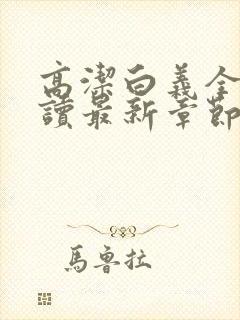 高潔白義全
讀最新章節
馬魯拉